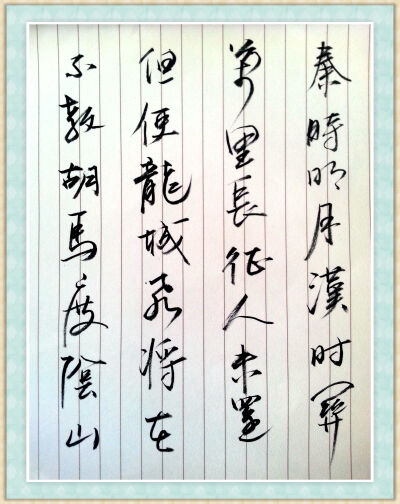 秦時明月漢时關
萬里長征人未還
但使龍城飛将在
不教胡馬度陰山